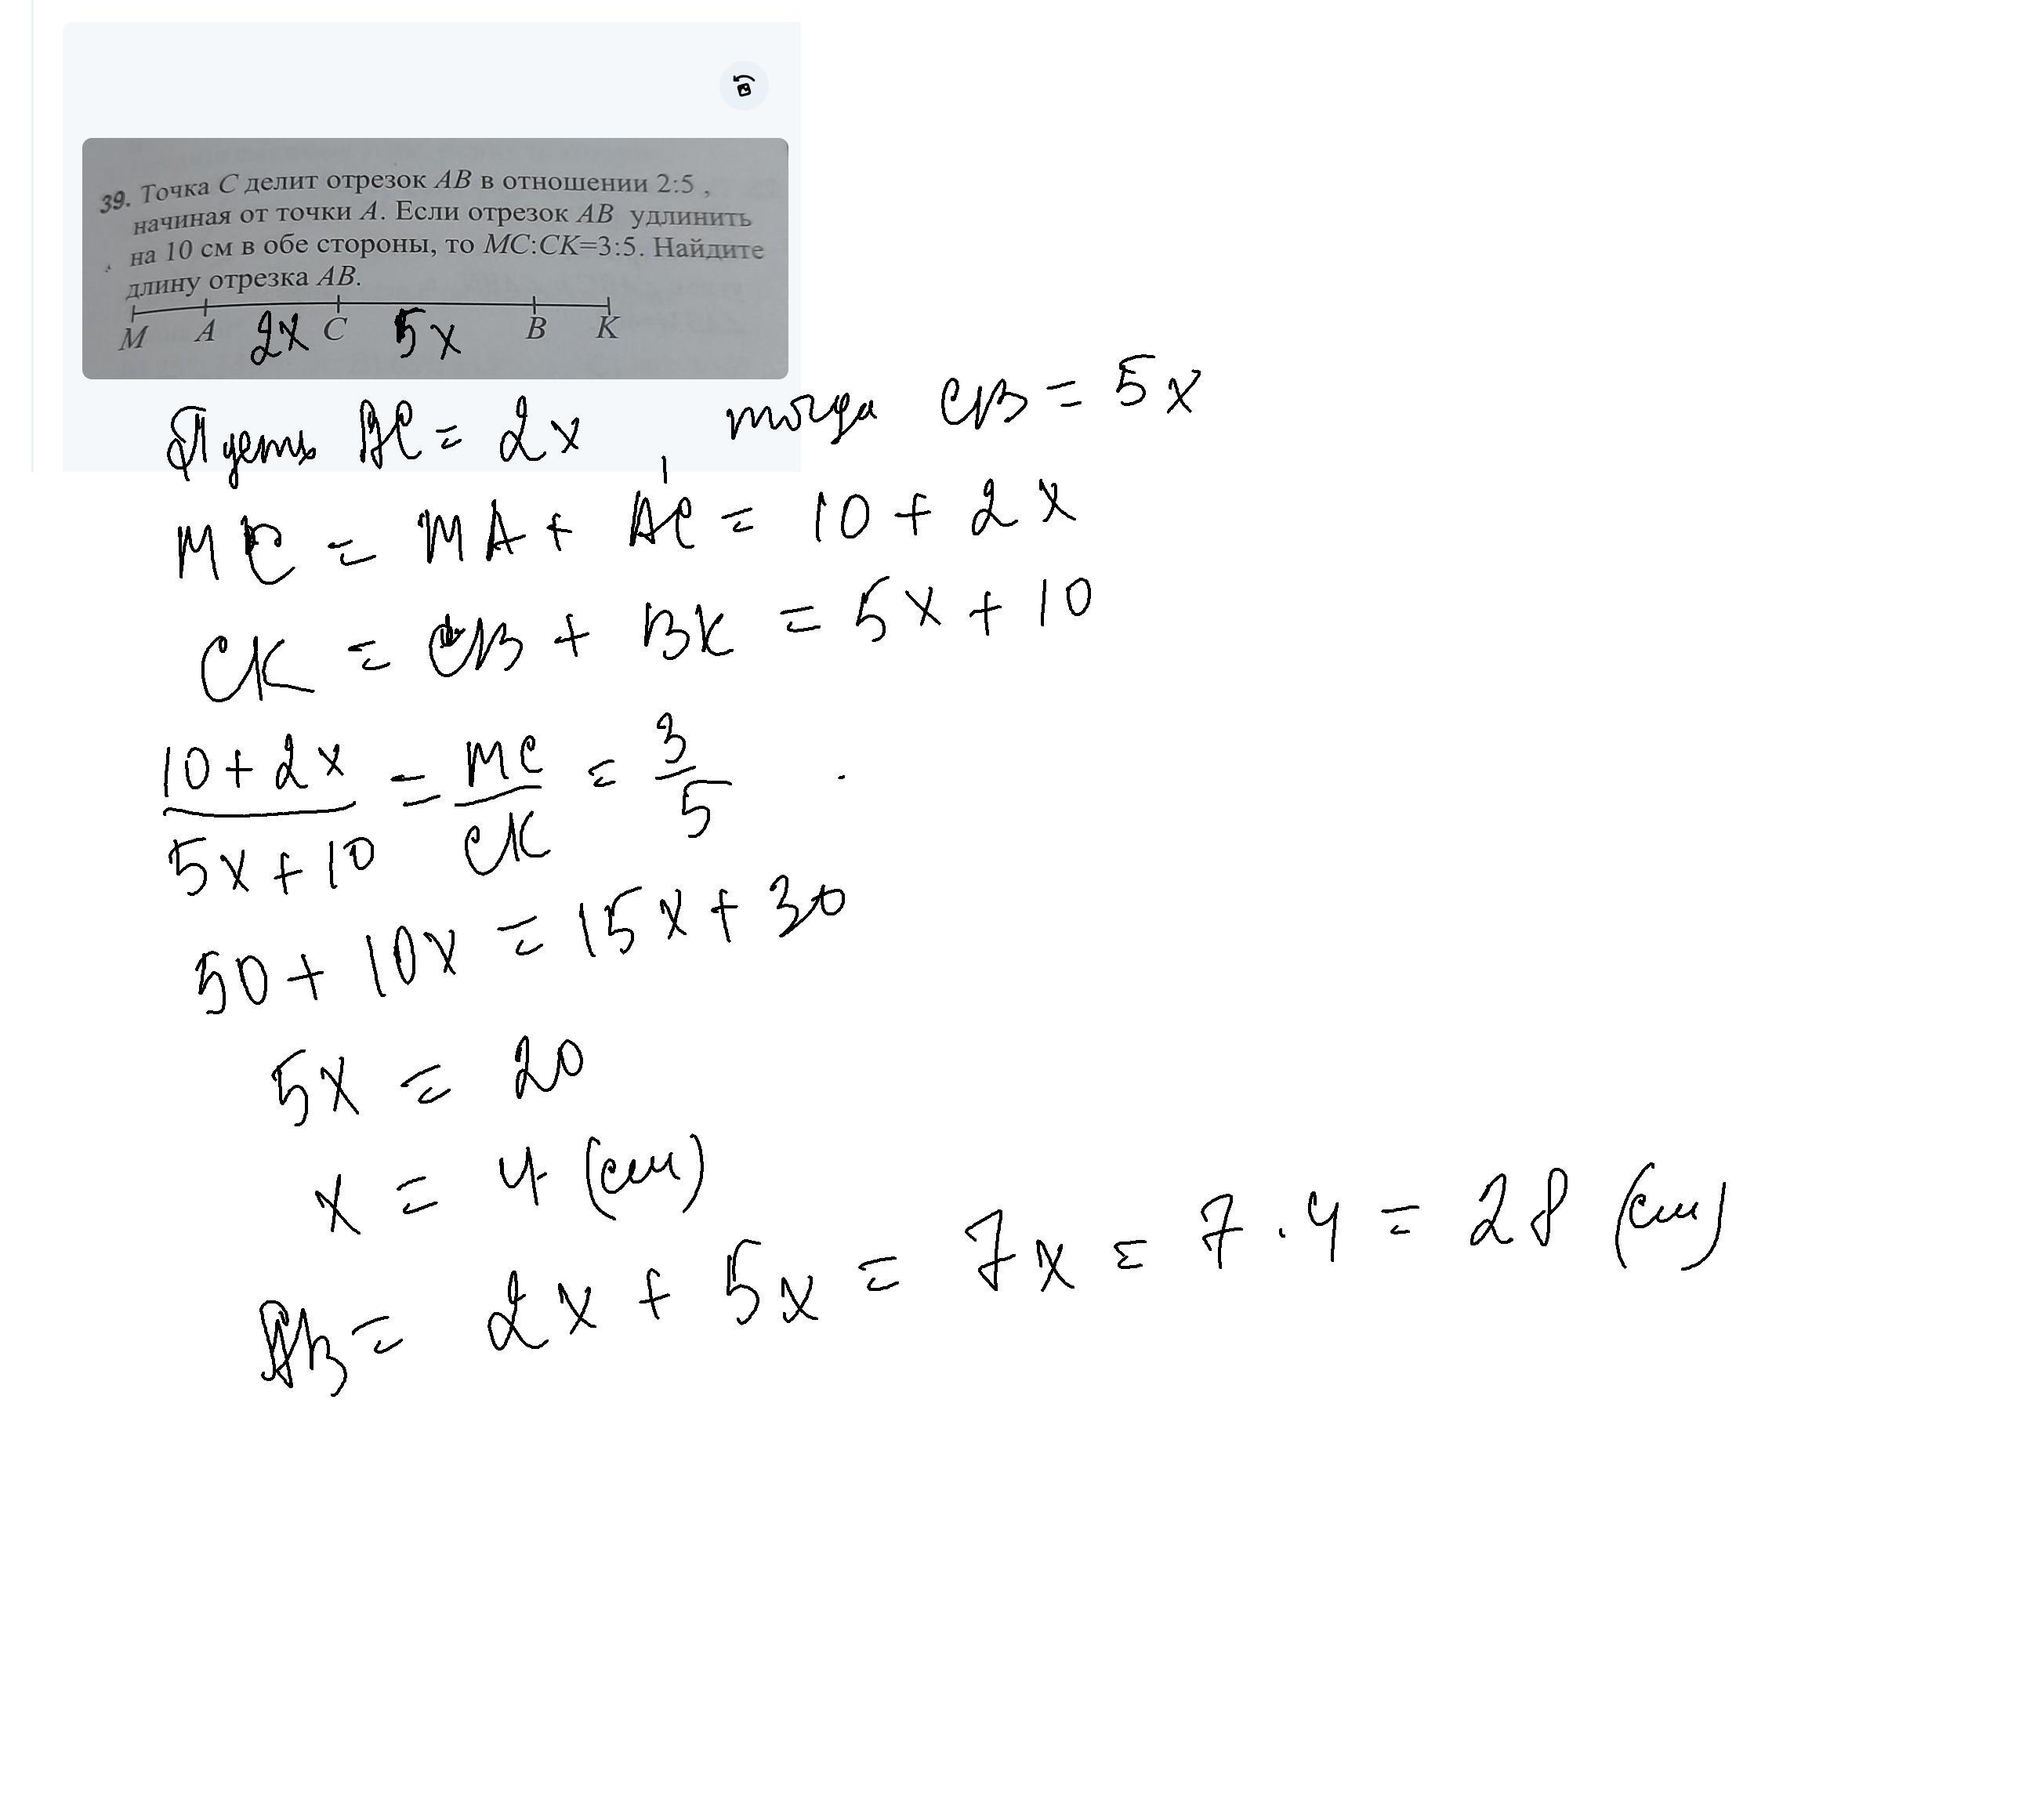 39. Точка C делит отрезок AB в отношении 2:5 ,
начиная от точки A. Если отрезок AB удлинить
на 10 см в обе стороны, то MC:CK=3:5. Найдите
длину отрезка AB.
M A 2x C 5x B K
Пусть AC = 2x , тогда CB = 5x
MC = MA + AC = 10 + 2x
CK = CB + BK = 5x + 10
(10 + 2x)/(5x + 10) = MC/CK = 3/5
50 + 10x = 15x + 30
5x = 20
x = 4 (см)
AB = 2x + 5x = 7x = 7 · 4 = 28 (см)